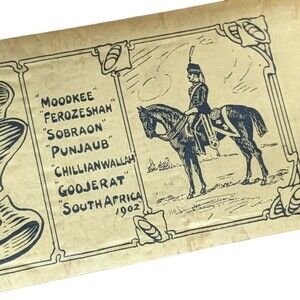 "MOODKEE"
FEROZESHAH"
"SOBRAON"
"PUNJAUB"
"CHILLIANWALLAH"
"GOOJERAT"
"SOUTH AFRICA
1902"